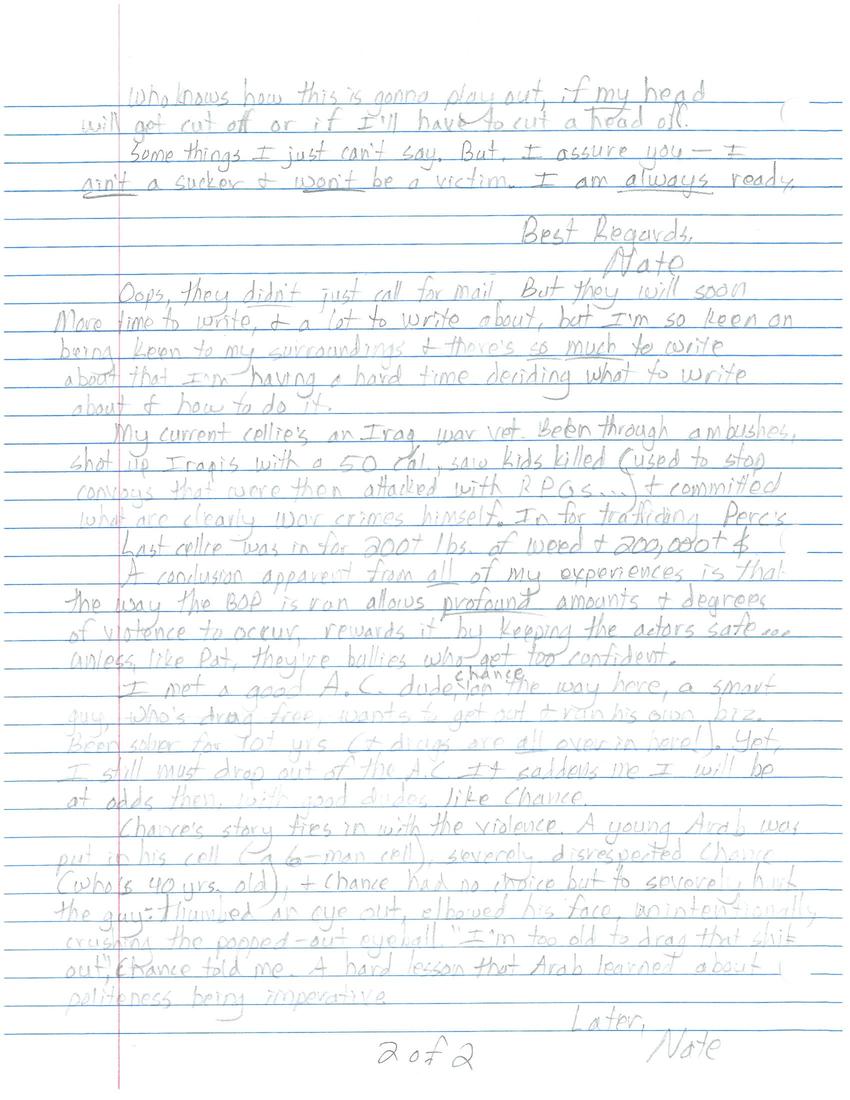 Who knows how this is gonna play out, if my head
will get cut off or if I'll have to cut a head off.
Some things I just can't say. But, I assure you – I
ain't a sucker & won't be a victim. I am always ready.
Best Regards,
Nate
Oops, they didn't just call for mail. But they will soon
More time to write, & a lot to write about, but I'm so keen on
being keen to my surroundings & there's so much to write
about that I'm having a hard time deciding what to write
about & how to do it.
My current cellie's an Iraq war vet. Been through ambushes,
shot up Iraqis with a 50 cal., saw kids killed (used to stop
convoys that were then attacked with RPGs...) & committed
what are clearly war crimes himself. In for trafficing Perc's
Last cellie was in for 200+ lbs. of weed & 200,000+ $
A conclusion apparent from all of my experiences is that
the way the BOP is run allows profound amounts & degrees
of violence to occur, rewards it by keeping the actors safe...
unless, like Pat, they're bullies who get too confident.
I met a good A.C. dude, chance, on the way here, a smart
guy, who's drug free, wants to get out & run his own biz.
Been sober for 10+ yrs (& drugs are all over in here!). Yet,
I still must drop out of the A.C. It saddens me I will be
at odds then, with good dudes like Chance.
Chance's story ties in with the violence. A young Arab was
put in his cell (a 6-man cell), severely disrespected Chance
(who's 40 yrs. old), & Chance had no choice but to severely hurt
the guy: Thumbed an eye out, elbowed his face, unintentionally
crushing the popped-out eyeball. "I'm too old to drag that shit
out", Chance told me. A hard lesson that Arab learned about
politeness being imperative.
Later,
Nate
2 of 2